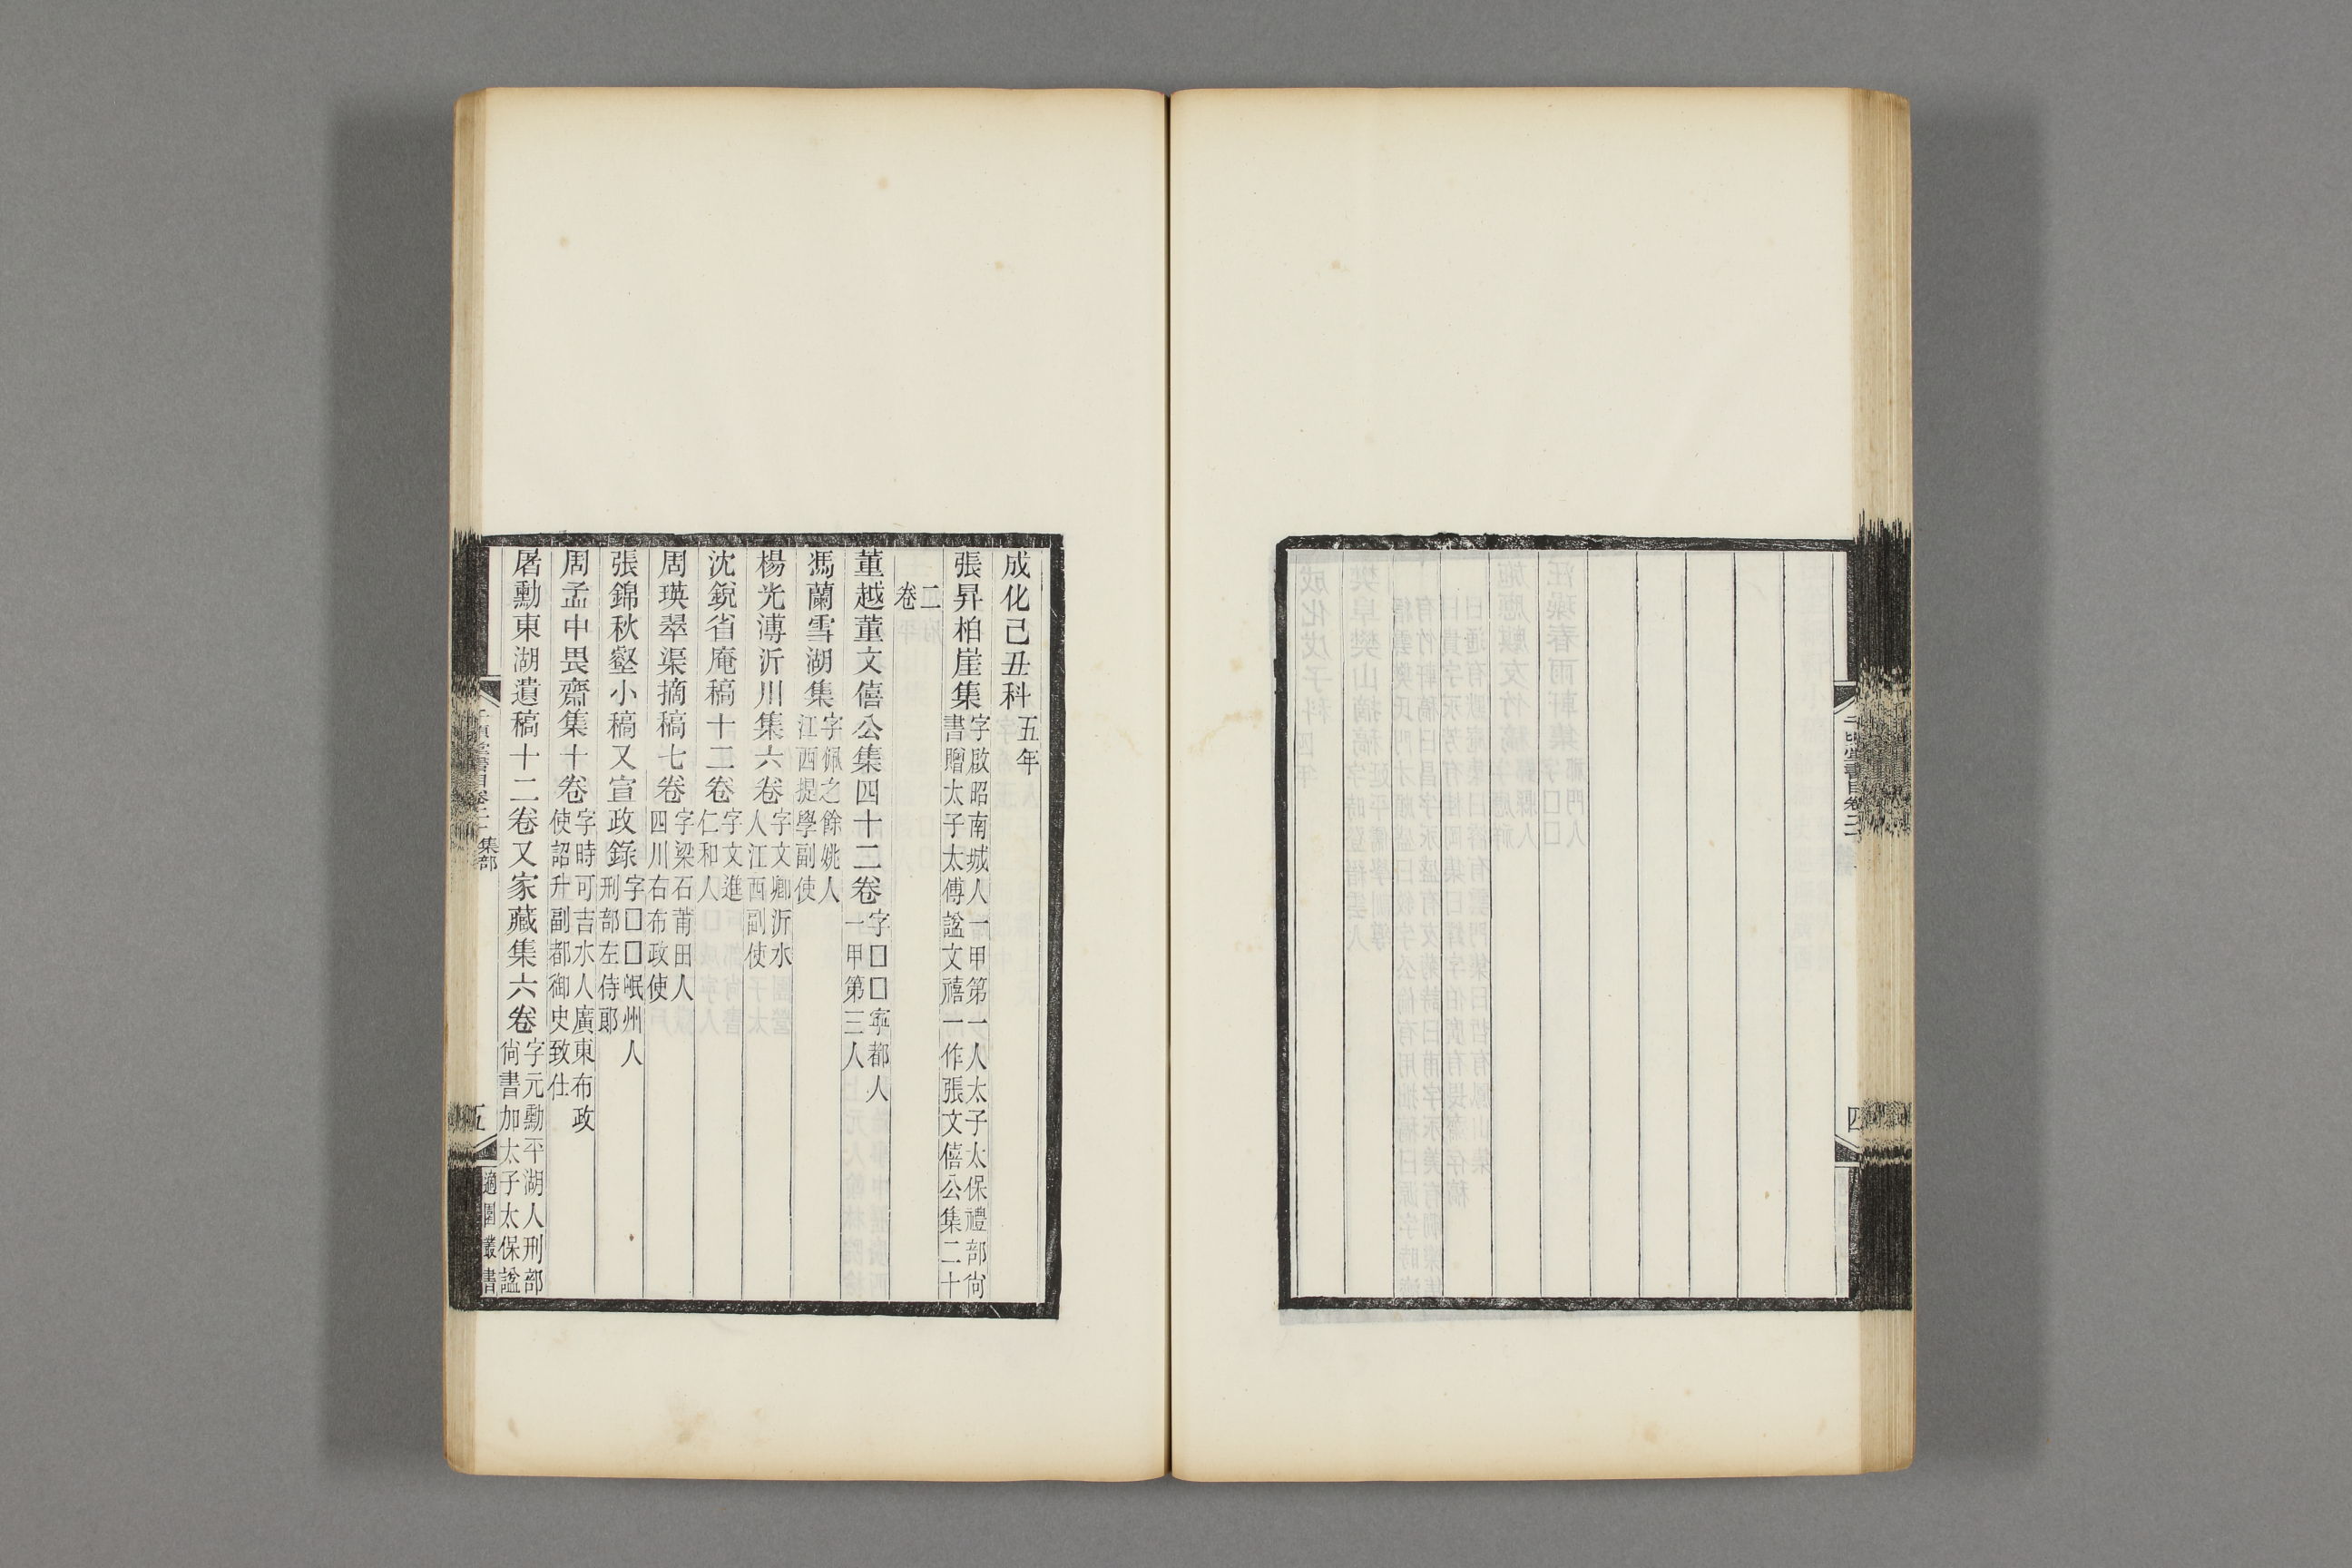 四
成化己丑科五年
張昇柏崖集字啟昭南城人一甲第一人太子太保禮部尙
書贈太子太傅諡文禧一作張文僖公集二十
二
卷
董越董文僖公集四十二卷字□□寧都人
一甲第三人
馮蘭雪湖集字佩之餘姚人
江西提學副使
楊光溥沂川集六卷字文卿沂水
人江西副使
沈銳省庵稿十二卷字文進
仁和人
周瑛翠渠摘稿七卷字梁石莆田人
四川右布政使
張錦秋壑小稿又宣政錄字□□岷州人
刑部左侍郞
周孟中畏齋集十卷字時可吉水人廣東布政
使詔升副都御史致仕
屠勳東湖遺稿十二卷又家藏集六卷字元勳平湖人刑部
尙書加太子太保諡
千頃堂書目卷二十 集部
五
適園叢書